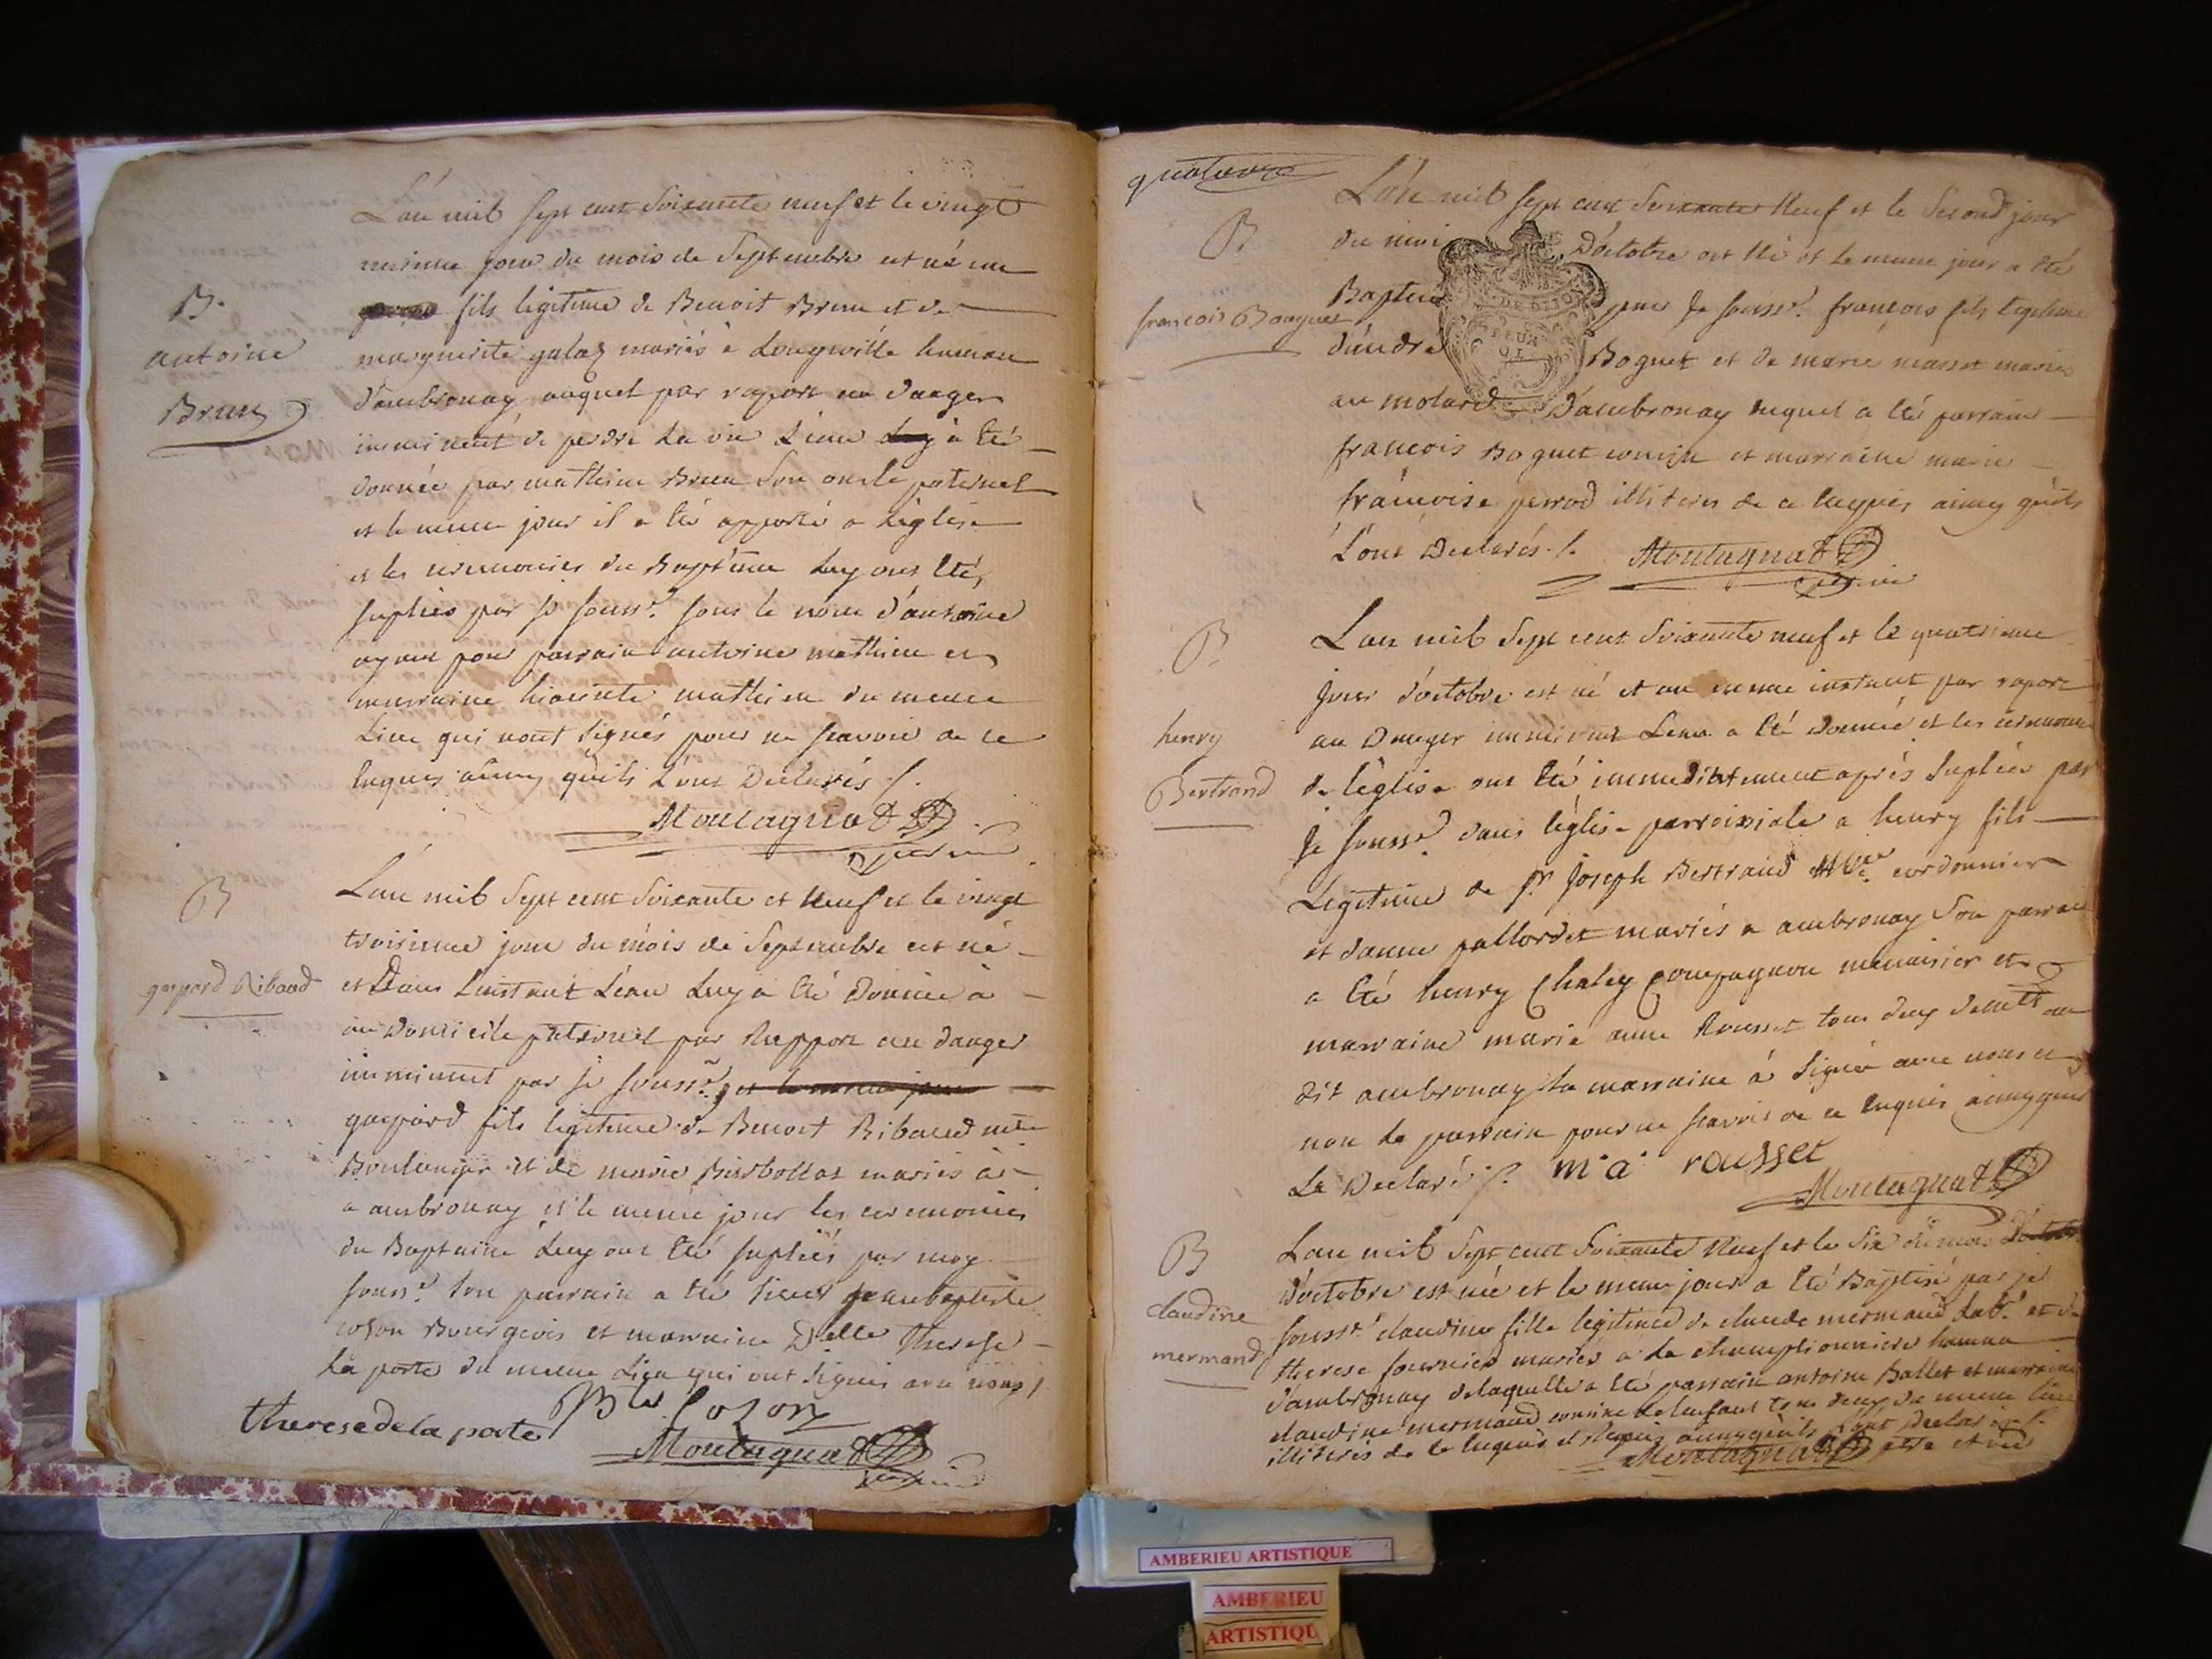 L'an mil sept cent Soixante neuf et le vingt
unieme jour du mois de Septembre est né un
fils legitime de Benoit Brun et de
marguerite galaz mariés à Longeville hameau
d'ambronay auquel par raport au danger
imminent de perdre la vie L'eau luy à Eté
donnée par mathieu Brun son oncle paternel
et le meme jour il a été apporté a l'eglise
et les ceremonies du Baptême Luy ont Eté
suplées par je souss.é sous le nom d'antoine
ayant pour parrain antoine mathieu et
marraine hiacinte mathieu du meme
Lieu qui n'ont signés pour ne scavoir de ce
Enquis ainsy qu'ils L'ont Declarés ./.
Montagnat
B.
antoine
Brun
L'an mil Sept cent Soixante et Neuf et le vingt
troisieme jour du mois de Septembre est né
et Dans L'instant L'eau Luy a Eté Donnée a
au Domicile paternel par Rapport au danger
imminent par je souss.é et le meme jour
gaspard fils legitime de Benoit Ribaud m.tre
Boulanger et de marie mariés à
a ambronay et le meme jour les ceremonies
du Baptaime Luy ont Eté supliés par moy
souss.é son parrain a Eté sieur jeanbaptiste
cozon Bourgeois et marraine D.elle Therese
La porte du meme Lieu qui ont signés avec nous /
B
gaspard Ribaud
therese de la porte
B.te Cozon
Montagnat
quatorze
L'an mil sept cent Soixante Neuf et le Second jour
du moi D'octobre est Né et le meme jour a Eté
Baptisé par Je souss.é françois fils legitime
d'andré Boguet et de marie masset mariés
au molard D'ambronay duquel a Eté parrain
françois Boguet cousin et marraine marie
françoise perrod illiteres de ce Enquis ainsy qu'ils
L'ont Declarés ./.
Montagnat
B
francois Boaguet
L'an mil Sept cent Soixante neuf et le quatrieme
jour d'octobre est né et au meme instant par raport
au Danger imminent L'eau a Eté donnée et les ceremonie
de l'église ont Eté immediatement aprés Supliés par
Je souss.é dans l'église parroissiale a henry fils
Legitime de s.r Joseph Bertrand cordonnier
et danne pallordet mariés a ambronay Son parrain
a Eté henry Chaley Compagnon menuisier et
marraine marie anne Rousset tous deux au
dit ambronay la marraine à Signée avec nous et
non le parrain pour ne scavoir de ce Enquis ainsy quil
La Declaré ./. m. a. rousset
Montagnat
B
henry
Bertrand
L'an mil Sept cent Soixante Neuf et le Six du mois
D'octobre est née et le meme jour a Eté Baptisé par je
souss.é claudine fille legitime de claude mermand Lab.r et de
therese fournier mariés a la championniere hameau
d'ambronay delaquelle a Eté parrain antoine Ballet et marraine
claudine mermand cousine de l'enfant tous deux du meme lieu
illiterés de ce Enquis ainsy qu'ils L'ont Declaré ./.
Montagnat
B
claudine
mermand
AMBERIEU ARTISTIQUE
AMBERIEU
ARTISTIQU